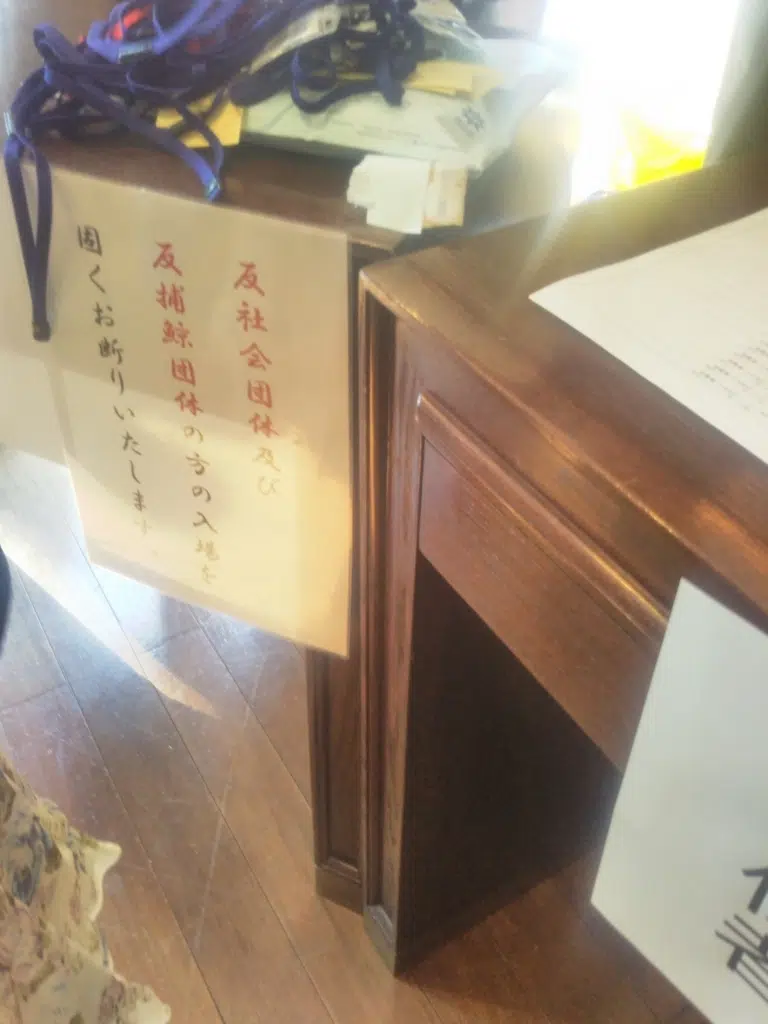 反社会団体及び
反捕鯨団体の方の入場を
固くお断りいたします